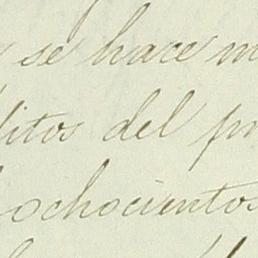 se hace m
litos del pr
ochocientos